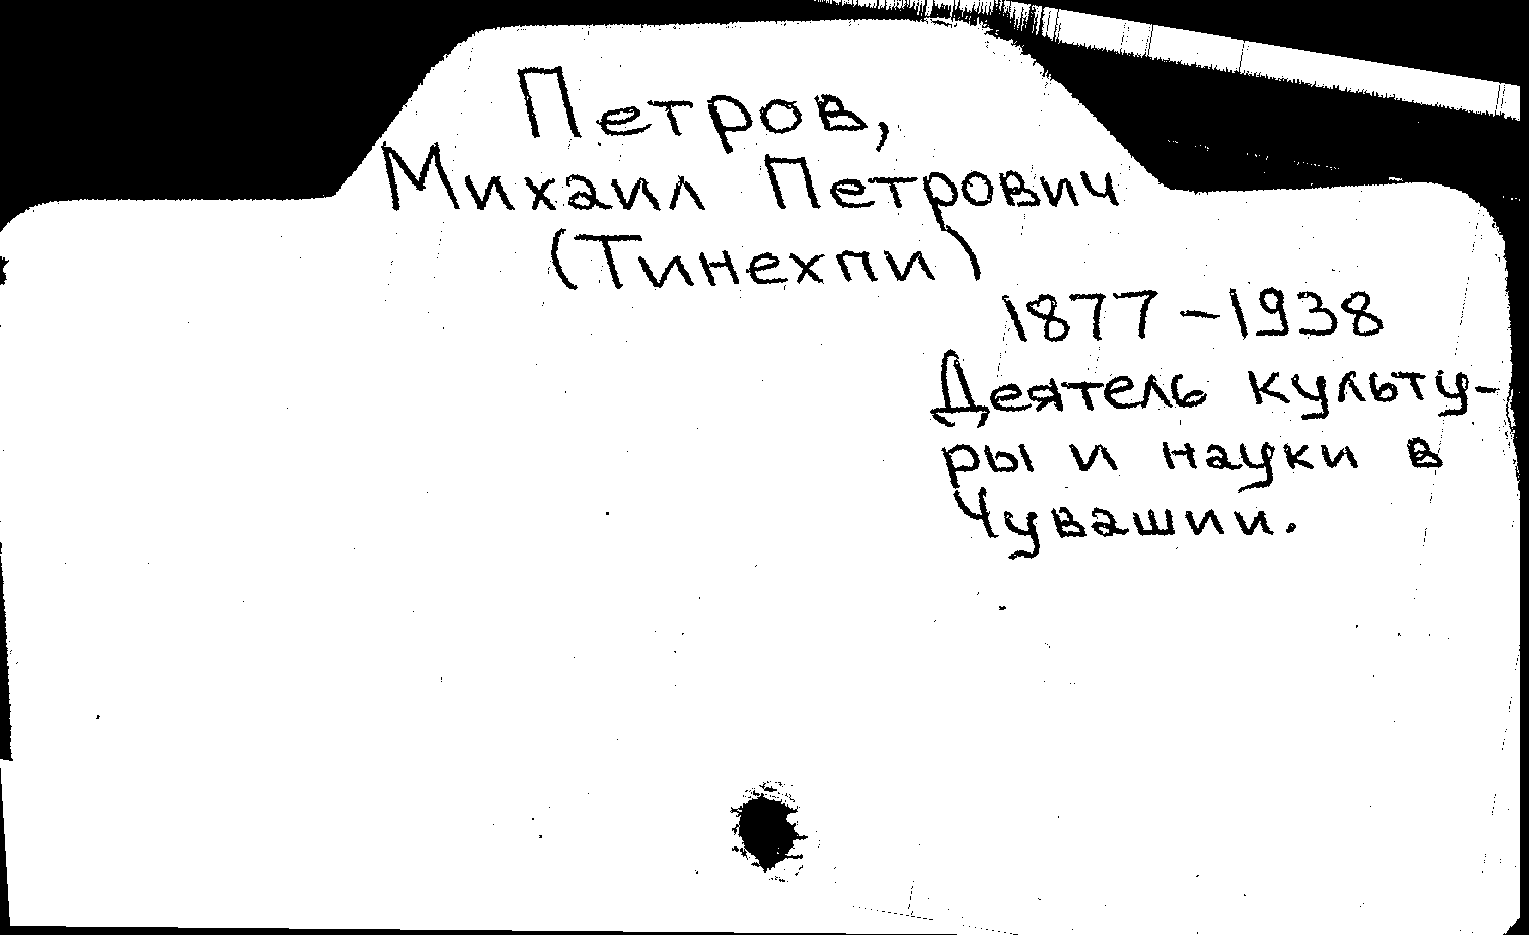 Петров,
Михаил Петрович
(Тинехпи)
1877-1938
Деятель культу-
ры и науки в
Чувашии.